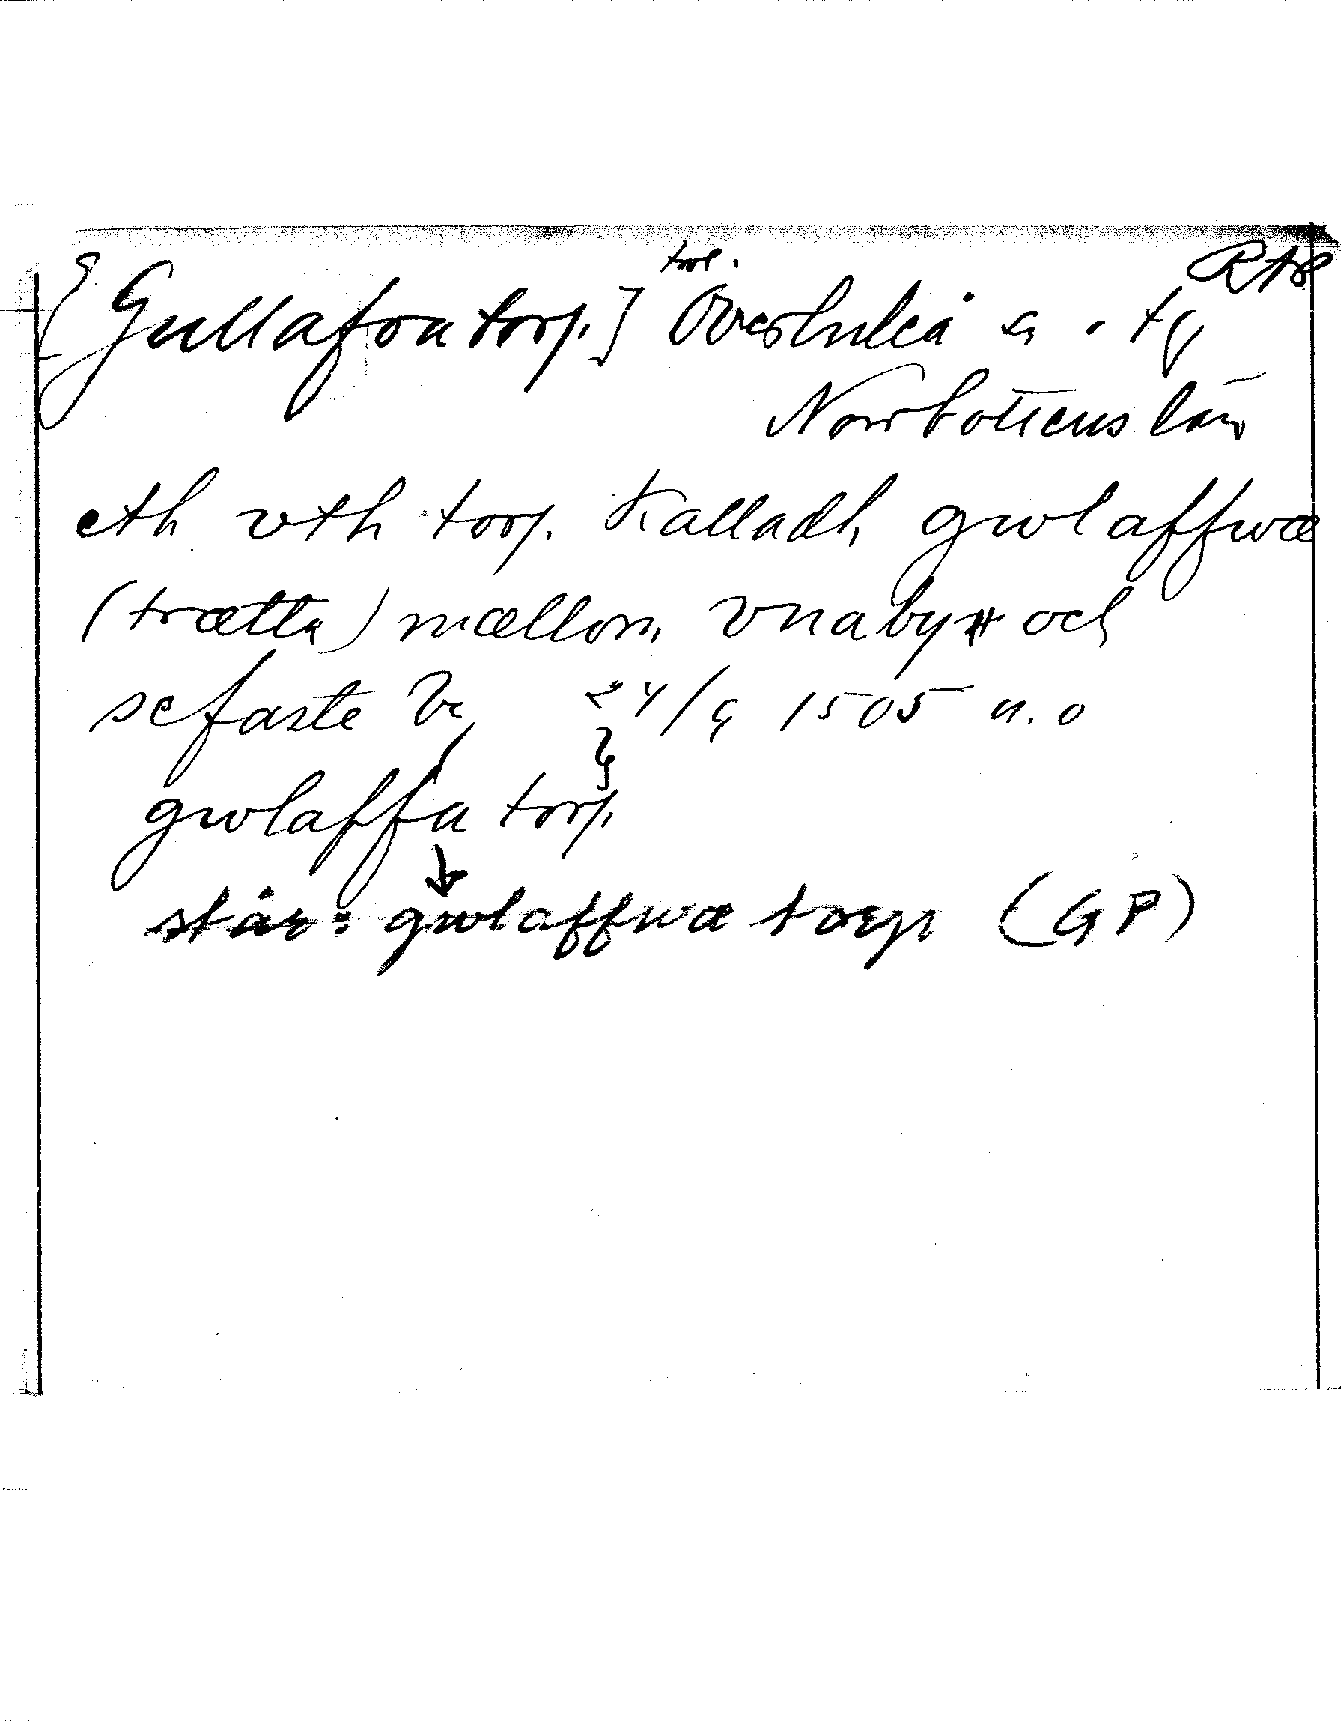 trol. RAp
[Gullafvatorp.] Överluleå s. o. tg
Norrbottens län
eth vth torp. Kalladh gwlaffwæ
(trætta) mællom vnaby och
sefaste 24/9 1505 u. o
gwlaffa torp
står: gwlaffwæ torp (GP)